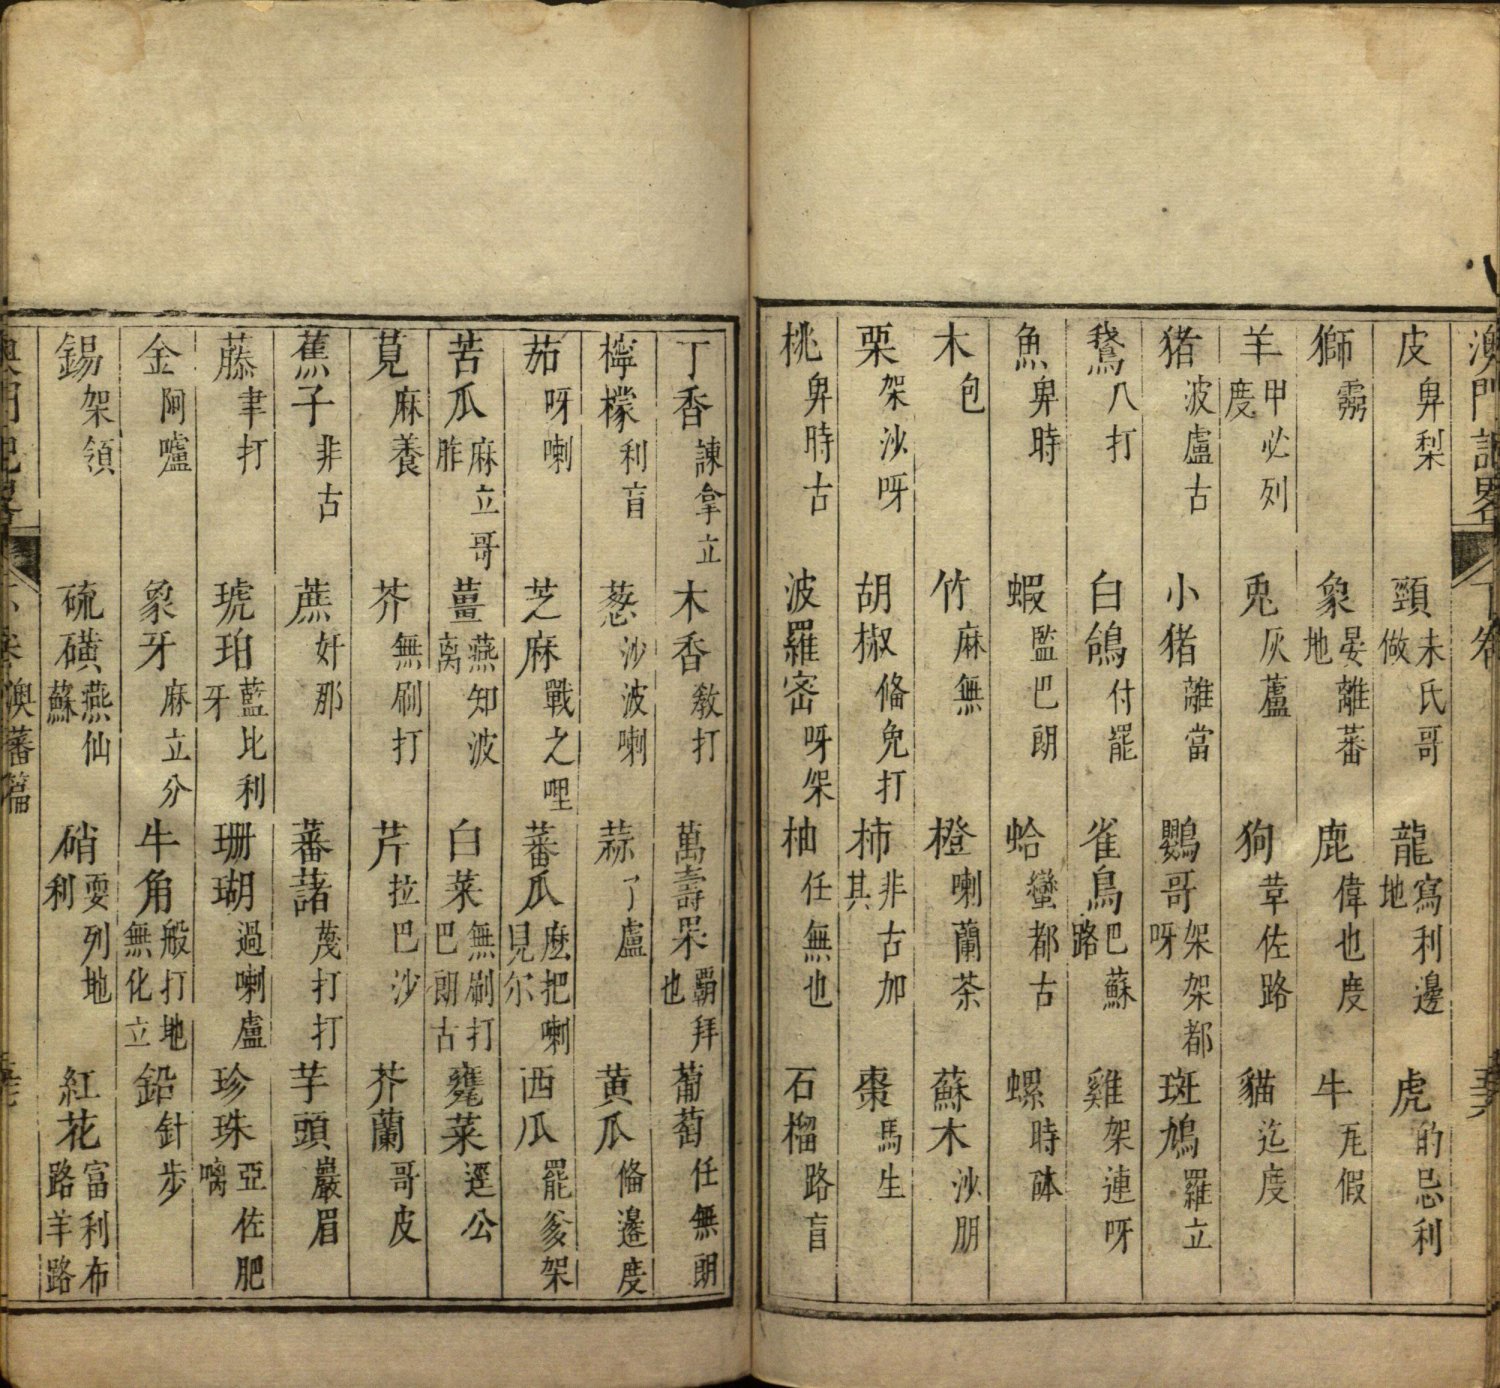 澳門記畧 下卷
皮卑梨 頸未氏哥做 龍寫利邊地 虎的忌利
獅 象晏離蕃地 鹿偉也度 牛瓦假
羊甲必列度 兎灰蘆 狗荁佐路 貓迄度
猪波盧古 小猪離當 鸚哥架架都呀 斑鳩羅立
鵞八打 白鴿付罷 雀鳥巴蘇路 雞架連呀
魚卑時 蝦監巴朗 蛤蠻都古 螺時砵
木包 竹麻無 橙喇蘭茶 蘇木沙朋
栗架沙呀 胡椒俻免打 柿非古加其 棗馬生
桃卑時古 波羅密呀架 柚任無也 石榴路盲
丁香諫拿立 木香教打 萬壽果覇拜也 葡萄任無朗
檸檬利盲 葱沙波喇 蒜了盧 黄瓜俻邊度
茄呀喇 芝麻戰之哩 蕃瓜麽把喇見尔 西瓜罷爹架
苦瓜麻立哥胙 薑燕知波离 白菜無刷打巴朗古 蕹菜逕公
莧麻養 芥無刷打 芹拉巴沙 芥蘭哥皮
蕉子非古 蔗奸那 蕃藷蔑打打 芋頭巖眉
藤聿打 琥珀藍比利牙 珊瑚過喇盧 珍珠亞佐肥喃
金阿嚧 象牙麻立分 牛角般打地無化立 鉛針步
錫架領 硫磺燕仙蘇 硝耍列地利 紅花富利布路羊路
澳蕃篇